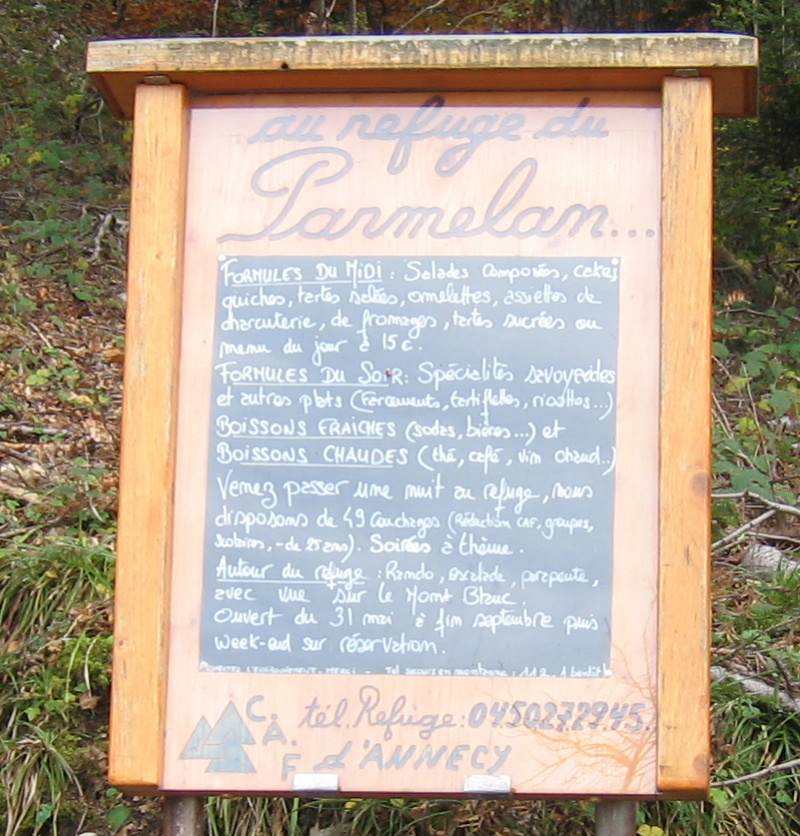 au refuge du
Parmelan...
FORMULES DU MIDI : Salades Composées, cakes,
quiches, tartes salées, omelettes, assiettes de
charcuterie, de fromages, tartes sucrées ou
menu du jour à 15€.
FORMULES DU SOIR : Spécialités savoyardes
et autres plats (Farcements, tartiflettes, risottos...)
BOISSONS FRAICHES (sodas, bières...) et
BOISSONS CHAUDES (thé, café, vin chaud..)
Venez passer une nuit au refuge, nous
disposons de 49 couchages (Réduction CAF, groupes,
scolaires, - de 25 ans). Soirées à thème.
Autour du refuge : Rando, escalade, parapente,
avec vue sur le Mont Blanc.
Ouvert du 31 mai à fin septembre puis
week-end sur réservation.
L'ENVIRONNEMENT - MERCI - Tel secours en montagne : 112
C.A.F. tél. Refuge : 0450272945.
d'ANNECY